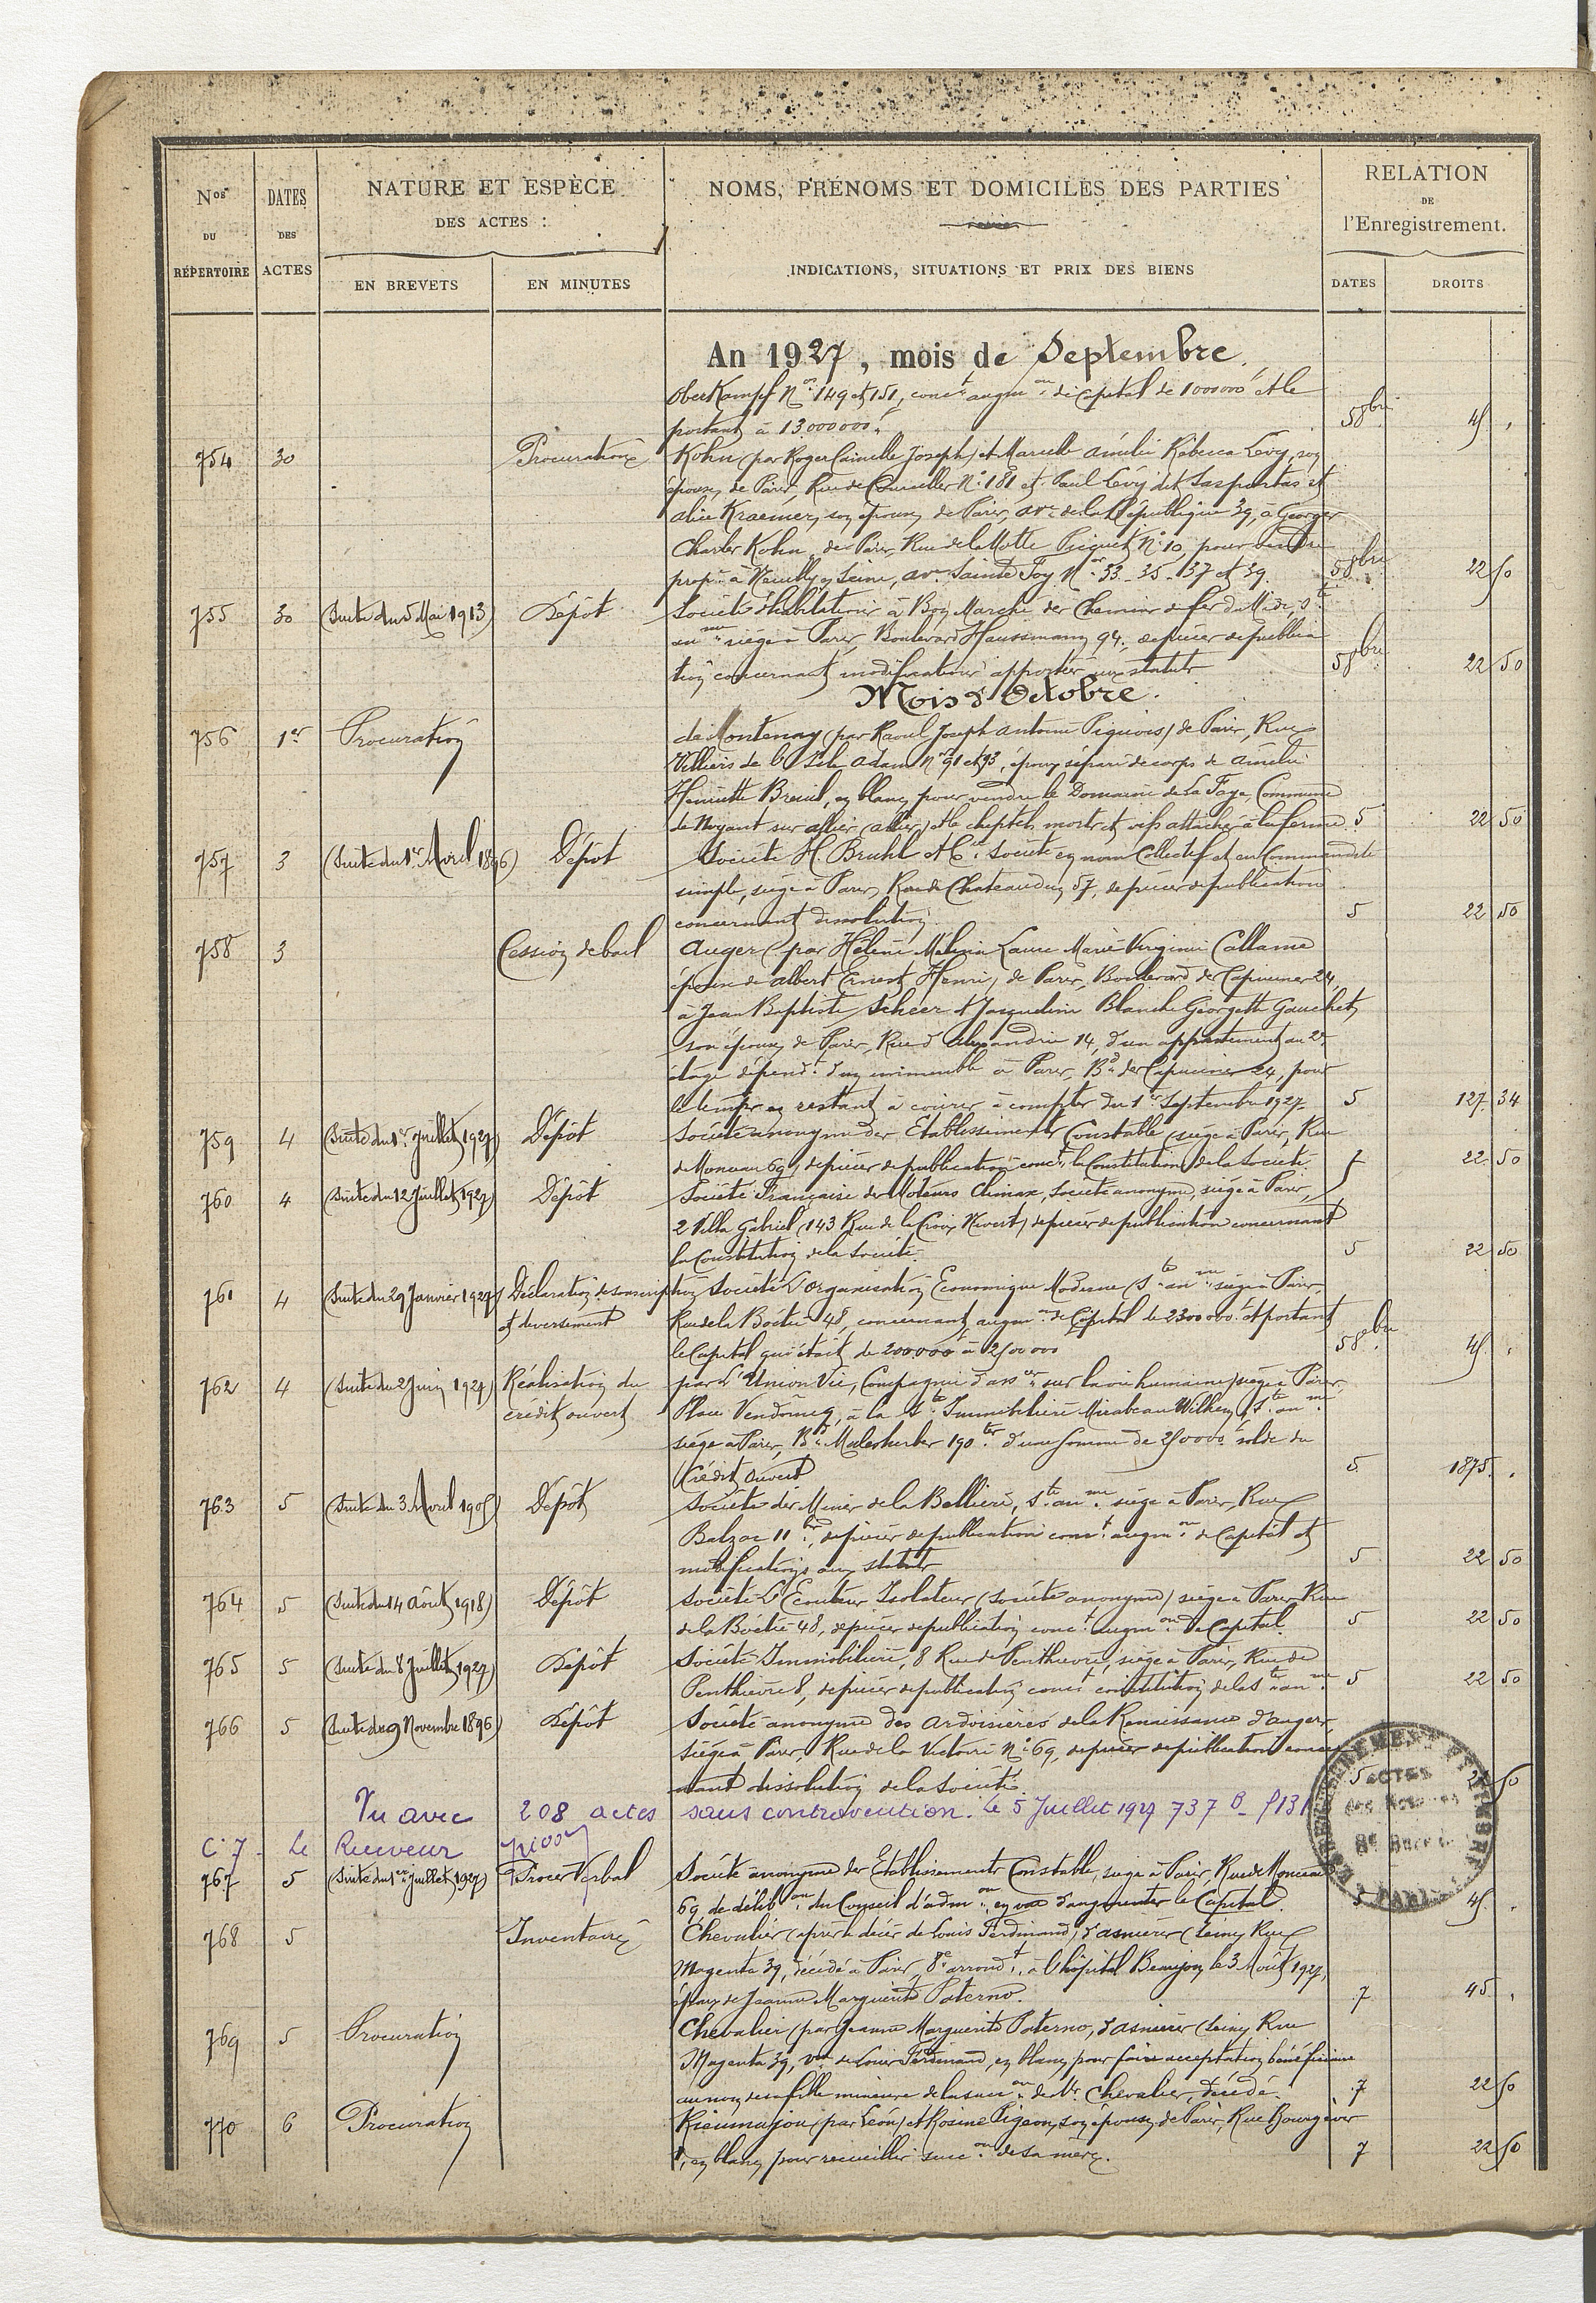 Nos DU RÉPERTOIRE
DATES DES ACTES
NATURE ET ESPÈCE
DES ACTES :
EN BREVETS
EN MINUTES
NOMS, PRÉNOMS ET DOMICILES DES PARTIES
INDICATIONS, SITUATIONS ET PRIX DES BIENS
RELATION
DE
l'Enregistrement.
DATES
DROITS
An 1927, mois de Septembre.
Oberkampf Nos 149 et 151, conct augmon de Capital de 1000000f et le
portant à 13.000000f 5 8bre 45 .
754 30 Procuration Kohn (par Roger Camille Joseph) et Marcelle Amélie Rébecca Lévy, son
épouse, de Paris, Rue de Courcelles No 181 et Paul Lévy dit Sasportas et
Alice Kraemer, son épouse, de Paris, ave de la République 39, à Georges
Charles Kohn, de Paris, Rue de la Motte Picquet No 10, pour vendre
propté à Neuilly s/ Seine, ave Sainte Foy Nos 33-35-37 et 39. 5 8bre 22 50
755 30 (Suite du 5 Mai 1913) Dépôt Société d'habitations à Bon Marché des Chemins de fer du Midi, sté
anme siège à Paris, Boulevard Haussmann 94, de pièces de publica
tion concernant modifications apportées aux statuts 5 8bre 22 50
Mois d'Octobre.
756 1er Procuration de Montenay (par Raoul Joseph Antoine Piquois) de Paris, Rue
Villiers de l'Isle Adam Nos 91 et 93, époux séparé de corps de Amélie
Henriette Breuil, en blanc, pour vendre le Domaine de La Faye, Commune
de Noyant sur Allier (Allier) et le cheptels morts et vifs attachés à la ferme 5 22 50
757 3 (Suite du 1er Avril 1896) Dépôt Société H. Bruhl et Cie Société en nom Collectif et en Commandite
simple, siège à Paris, Rue de Chateaudun 57, de pièces de publication
concernant dissolution. 5 22 50
758 3 Cession de bail Auger (par Hélène Laure Marie Virginie Callame
épouse de Albert Ernest Henri) de Paris, Boulevard des Capucines 24,
à Jean Baptiste Scheer et Jacqueline Blanche Georgette Gauchet,
son épouse, de Paris, Rue d'Alexandrie 14, d'un appartement au 2e
étage dépendt d'un immeuble à Paris, Bd des Capucines 24, pour
le temps en restant à courir à compter du 1er Septembre 1927 5 127. 34
759 4 (Suite du 1er Juillet 1927) Dépôt Société anonyme des Etablissements Constable (siège à Paris, Rue
de Monceau 69) de pièces de publication conct la Constitution de la Société. 5 22 50
760 4 (Suite du 12 Juillet 1927) Dépôt Société Française des Moteurs Climax, Société anonyme, siège à Paris,
2 Villa Gabriel (143 Rue de la Croix Nivert) de pièces de publication concernant
la Constitution de la Société. 5 22 50
761 4 (Suite du 29 Janvier 1927) Déclaration de souscription Société L'Organisation Economique Moderne (sté anme siège à Paris,
et versement Rue de la Boétie 48, concernant augmon de Capital de 2300000f et portant
le Capital qui était de 200000f à 2500000 5 8bre 45 .
762 4 (Suite du 2 Juin 1927) Réalisation de par L'Union Vie, Compagnie d'assces sur la vie humaine, siège à Paris
crédit ouvert Place Vendôme 9, à la Sté Immobilière Mirabeau Wilhem, Sté anme
siège à Paris, Bd Malesherbes 190 ter d'une somme de 250000f solde du
Crédit Ouvert 5 1875. .
763 5 (Suite du 3 Avril 1905) Dépôt Société des Mines de la Bellière, sté anme siège à Paris, Rue
Balzac 11 bis, de pièces de publication conct augmon de Capital et
modifications aux statuts 5 22 50
764 5 (Suite du 14 Août 1918) Dépôt Société L'Ecouteur Isolateur (Société anonyme) siège à Paris Rue
de la Boétie 48, de pièces de publication conct augmon de Capital. 5 22 50
765 5 (Suite du 8 Juillet 1927) Dépôt Société Immobilière, 8 Rue de Penthièvre, siège à Paris, Rue de
Penthièvre 8, de pièces de publication conct constitution de la sté anme 5 22 50
766 5 (Suite du 9 Novembre 1896) Dépôt Société anonyme des Ardoisières de la Renaissance d'Angers,
siège à Paris, Rue de la Victoire No 69, de pièces de publication concer
nant dissolution de la Société. 5 22 50
Vu avec 208 actes sans contravention. Le 5 Juillet 1927 737 B - f 131
C. 7. Le Receveur
767 5 (Suite du 1er Juillet 1927) Procès Verbal Société anonyme des Etablissements Constable, siège à Paris, Rue de Monceau
69, de délibon du Conseil d'admon en vue d'augmenter le Capital. 5 45 .
768 5 Inventaire Chevalier (après le décès de Louis Ferdinand) d'Asnières (Seine) Rue
Magenta 39, décédé à Paris, 8e arrondt, à l'hôpital Beaujon, le 3 Août 1927,
époux de Jeanne Marguerite Paterno. 7 45 .
769 5 Procuration Chevalier (par Jeanne Marguerite Paterno, d'Asnières (Seine) Rue
Magenta 39, vve de Louis Ferdinand, en blanc, pour faire acceptation bénéficiaire
au nom de sa fille mineure de la succon de Mr Chevalier, décédé. 7 22 50
770 6 Procuration Rieumajou (par Léon) et Rosine Pigeon, son épouse, de Paris, Rue Bourg
en blanc, pour recueillir succon de sa mère. 7 22 50
ACTES